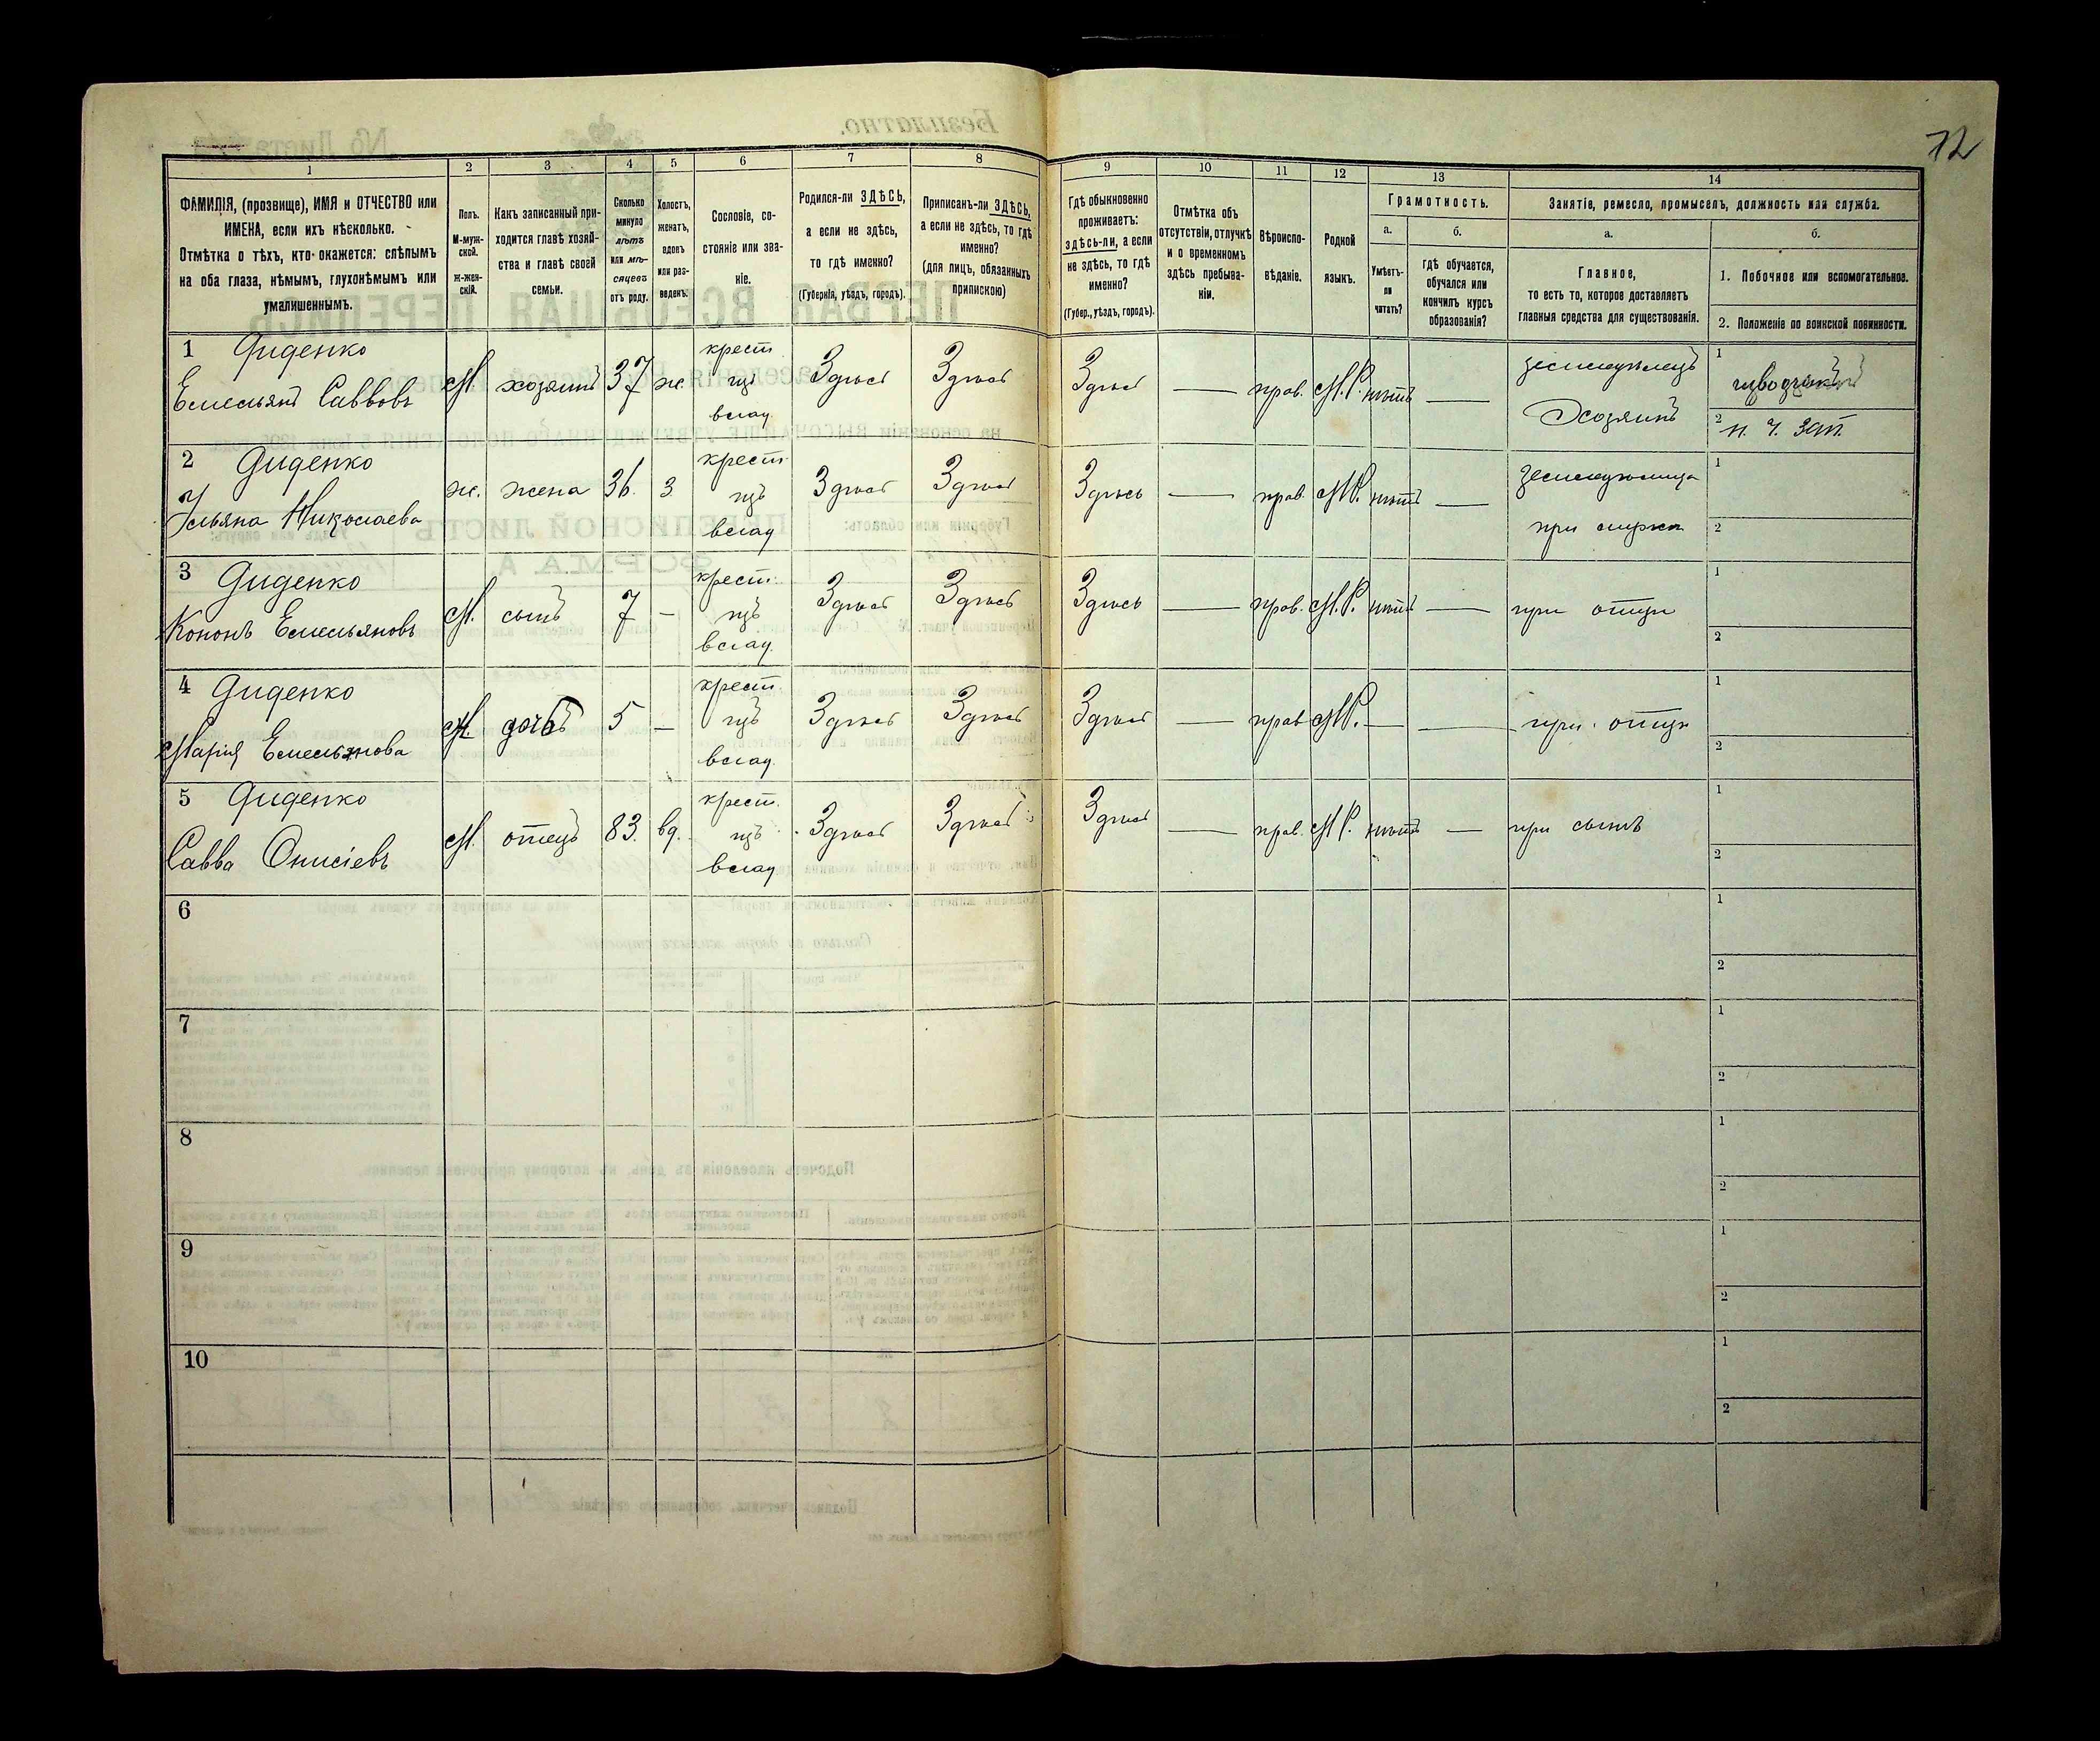 72
1 2 3 4 5 6 7 8 9 10 11 12 13 14
ФАМИЛІЯ, (прозвище), ИМЯ и ОТЧЕСТВО или
ИМЕНА, если ихъ нѣсколько.
Отмѣтка о тѣхъ, кто окажется: слѣпымъ
на оба глаза, нѣмымъ, глухонѣмымъ или
умалишеннымъ.
Полъ.
М-муж-
ской.
Ж-жен-
скій.
Какъ записанный при-
ходится главѣ хозяй-
ства и главѣ своей
семьи.
Сколько
минуло
лѣтъ
или мѣ-
сяцевъ
отъ роду.
Холостъ,
женатъ,
вдовъ
или раз-
веденъ.
Сословіе, со-
стояніе или зва-
ніе.
Родился-ли ЗДѢСЬ,
а если не здѣсь,
то гдѣ именно?
(Губернія, уѣздъ, городъ).
Приписанъ-ли ЗДѢСЬ,
а если не здѣсь, то гдѣ
именно?
(для лицъ, обязанныхъ
припискою)
Гдѣ обыкновенно
проживаетъ:
здѣсь-ли, а если
не здѣсь, то гдѣ
именно?
(Губер., уѣздъ, городъ).
Отмѣтка объ
отсутствіи, отлучкѣ
и о временномъ
здѣсь пребыва-
ніи.
Вѣроиспо-
вѣданіе.
Родной
языкъ.
Грамотность.
а.
Умѣетъ-
ли
читать?
б.
гдѣ обучается,
обучался или
кончилъ курсъ
образованія?
Занятіе, ремесло, промыселъ, должность или служба.
а.
Главное,
то есть то, которое доставляетъ
главныя средства для существованія.
б.
1. Побочное или вспомогательное.
2. Положеніе по воинской повинности.
1 Диденко
Емельянъ Саввовъ М. хозяинъ 37 ж. крест. изъ влад. Здѣсь Здѣсь Здѣсь — прав. М.Р. нѣтъ — земледѣлецъ
Хозяинъ
1
2 н. ч. зап.
2 Диденко
Ульяна Николаева ж. жена 36. з. крест. изъ влад. Здѣсь Здѣсь Здѣсь — прав. М.Р. нѣтъ —
при мужѣ
1
2
3 Диденко
Кононъ Емельяновъ М. сынъ 7 — крест. изъ влад. Здѣсь Здѣсь Здѣсь — прав. М.Р. нѣтъ — при отцѣ
1
2
4 Диденко
Марія Емельянова дочь 5 — крест. изъ влад. Здѣсь Здѣсь Здѣсь — прав. М.Р. — — при отцѣ
1
2
5 Диденко
Савва Онисіевъ М. отецъ 83. вд. крест. изъ влад. Здѣсь Здѣсь Здѣсь — прав. М.Р. нѣтъ — при сынѣ
1
2
6
1
2
7
1
2
8
1
2
9
1
2
10
1
2